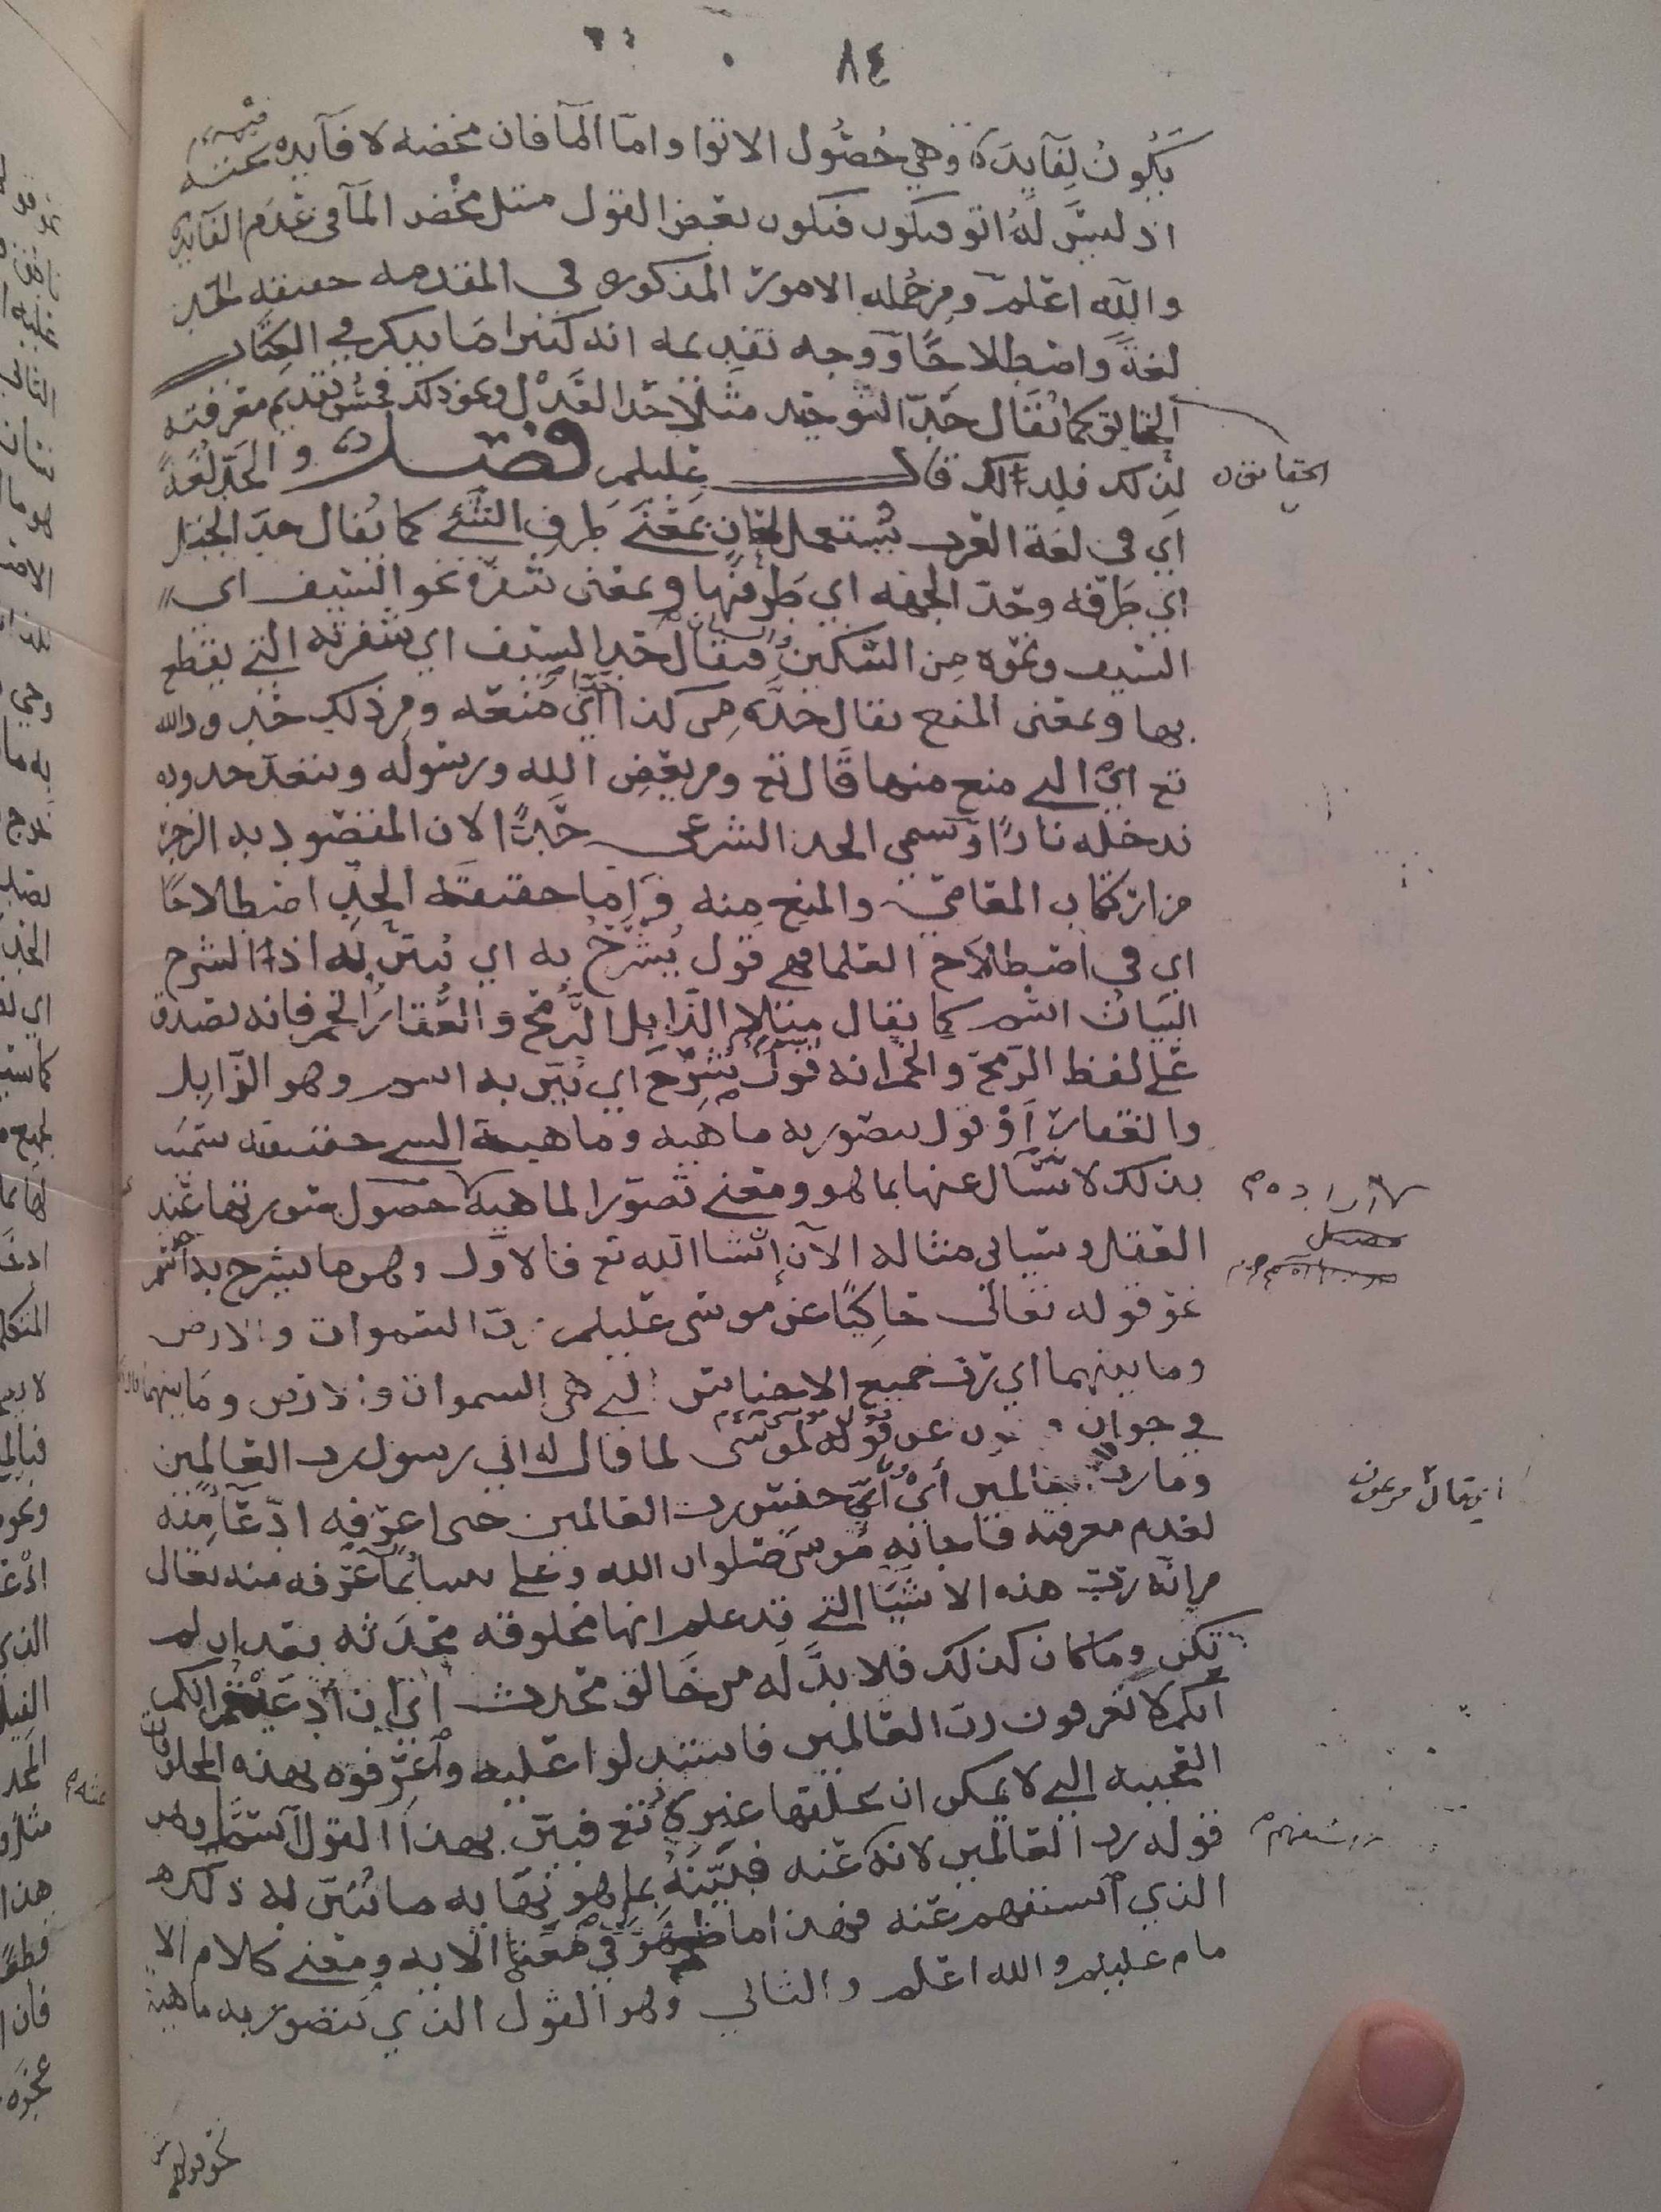 ٨٤
يكون لفايدة وهي حصول الاتوا واما المآ فان مخضه لا فآيده فيه
اذ ليس له اتو فيكون بعض القول مثل مخض المآ في عدم الفايده
والله اعلم ومن جمله الامور المذكوره في المقدمه حقيقه الحد
لغة واصطلاحًا ووجه تقديمه انه كثيرا ما يذكر في الكتاب
الحقايق كما يقال حد التوحيد مثلا حد العدل ونحو ذلك فحسن تقديم معرفته
لذلك فلذلك قال عليلم فصل والحد لغةً
الحقايق ن
اي في لغة العرب يستعمل لمعانٍ بمعنى طرف الشيء كما يقال حد الجبل
اي طرفه وحد الجهه اي طرفها وبمعنى شفرة نحو السيف اي
السيف ونحوه من السكين فيقال حد السيف اي شفرته التي يقطع
بها وبمعنى المنع يقال حده من كذا اي منعه ومن ذلك حدود الله
تع اي التي منع منها قال تع ومن يعص الله ورسوله ويتعد حدوده
ندخله نارًا وسمي الحد الشرعي حدًا لان المقصود به الزجر
من ارتكاب المعاصي والمنع منه واما حقيقة الحد اصطلاحًا
اي في اصطلاح العلما فهي قول يُشرح به اي يُبين به اذ الشرح
البيان اسم كما يقال مثلا الذابل الرمح والعُقار الخمر فانه يصدق
على لفظ الرمح والخمر انه قول يشرح اي يبين به اسم وهو الذابل
والعقار أو قول يتصور به ماهيه وماهية الشي حقيقته سميت
بذلك لانه يسأل عنها بما هو ومعنى تصور الماهية حصول صورتها عند
العقل وسياتي مثاله الآن إنشا الله تع فالاول وهو ما يشرح به اسم
نحو قوله تعالى حاكيًا عن موسى عليلم رب السموات والارض
وما بينهما اي رب جميع الاجناس التي هي السموات والارض وما بينهما
في جواب فرعون عن قوله لموسى لما قال له اني رسول رب العالمين
وما رب العالمين أيْ أيّ جنس رب العالمين حتى اعرفه ادعآ منه
اي قال فرعون
لعدم معرفته فاجابه موسى صلوات الله وعلى نبينا بما عرفه منه تعال
من انه رب هذه الاشيا التي قد علم انها مخلوقه محدثه بعد ان لم
تكن وما كان كذلك فلا بد له من خالق محدث اي ان ادعيتم
انكم لا تعرفون رب العالمين فاستدلوا عليه واعرفوه بهذه المخلوقات
العجيبه التي لا يمكن ان يخلقها غيره تع فبين بهذا القول اسمًا وهو
قوله رب العالمين لانه عنه فبينه بما هو به ما يبين له ذلك
الذي استفهم عنه فهذا ما ظهر في معنى الايه ومعنى كلام الا
مام عليلم والله اعلم والثاني وهو القول الذي يتصور به ماهية
نحو قولهم